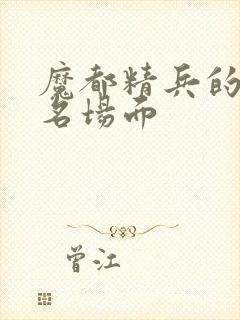 魔都精兵的
名場面
曾江